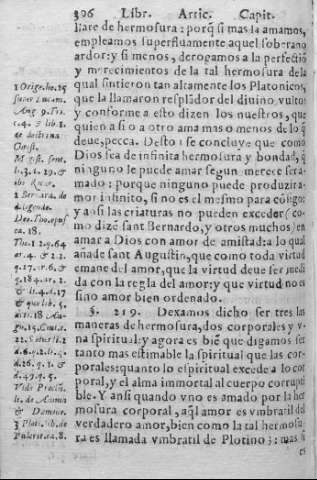 396 Libr. Artic. Capit.
llare de hermosura: porq̃ si mas la amamos,
empleamos superfluamente aquel soberano
ardor: y si menos, derogamos a la perfectiõ
y merecimientos de la tal hermosura de la
qual sintieron tan altamente los Platonicos,
que la llamaron resplãdor del diuino vultos
y conforme a esto dizen los nuestros, que
quien a si o a otro ama mas o menos de lo q̃
deue, pecca. Desto se concluye que como
Dios sea de infinita hermosura y bondad, q̃
ninguno le puede amar segun merece ser a-
mado: porque ninguno puede produzir a-
mor infinito, si no es el mesmo para cõsigo:
y ansi las criaturas no pueden exceder (co-
mo dize sant Bernardo, y otros muchos) en
amar a Dios con amor de amistad: a lo qual
añade sant Augustin, que como toda virtud
emane del amor, que la virtud deue ser medi
da con la regla del amor: y que virtud no es
sino amor bien ordenado.
§. 219. Dexamos dicho ser tres las
maneras de hermosura, dos corporales y v-
na spiritual: y agora es biẽ que digamos ser
tanto mas estimable la spiritual que las cor-
porales: quanto lo espiritual excede a lo cor
poral, y el alma immortal al cuerpo corrupti
ble. Y ansi quando vno es amado por la her
mosura corporal, aq̃l amor es vmbratil del
verdadero amor, bien como la tal hermosu-
ra es llamada vmbratil de Plotino: mas si
1 Orige. ho. 15
super Lucam.
Aug.
c. 4. & lib. 1.
de doctrina
Christ.
Magist. sent.
li. 3. d. 29. &
1 Bernard. de
diligendo
Deo.
ca. 18.
Tho. 1. 2. q. 64
ar. 4. & 2. 2.
q. 17. ar. 6. &
q. 184. ar. 2.
& li. 4. d. 17
& quolib. 5.
ar. 18
22.
d. 6. q. 2. li. 9.
d. 26. q. 1. &
d. 49. q. 5.
Vide
li. de Anima
& Dæmone.
3 Plot. lib. de
Pulcrit. ca. 8.